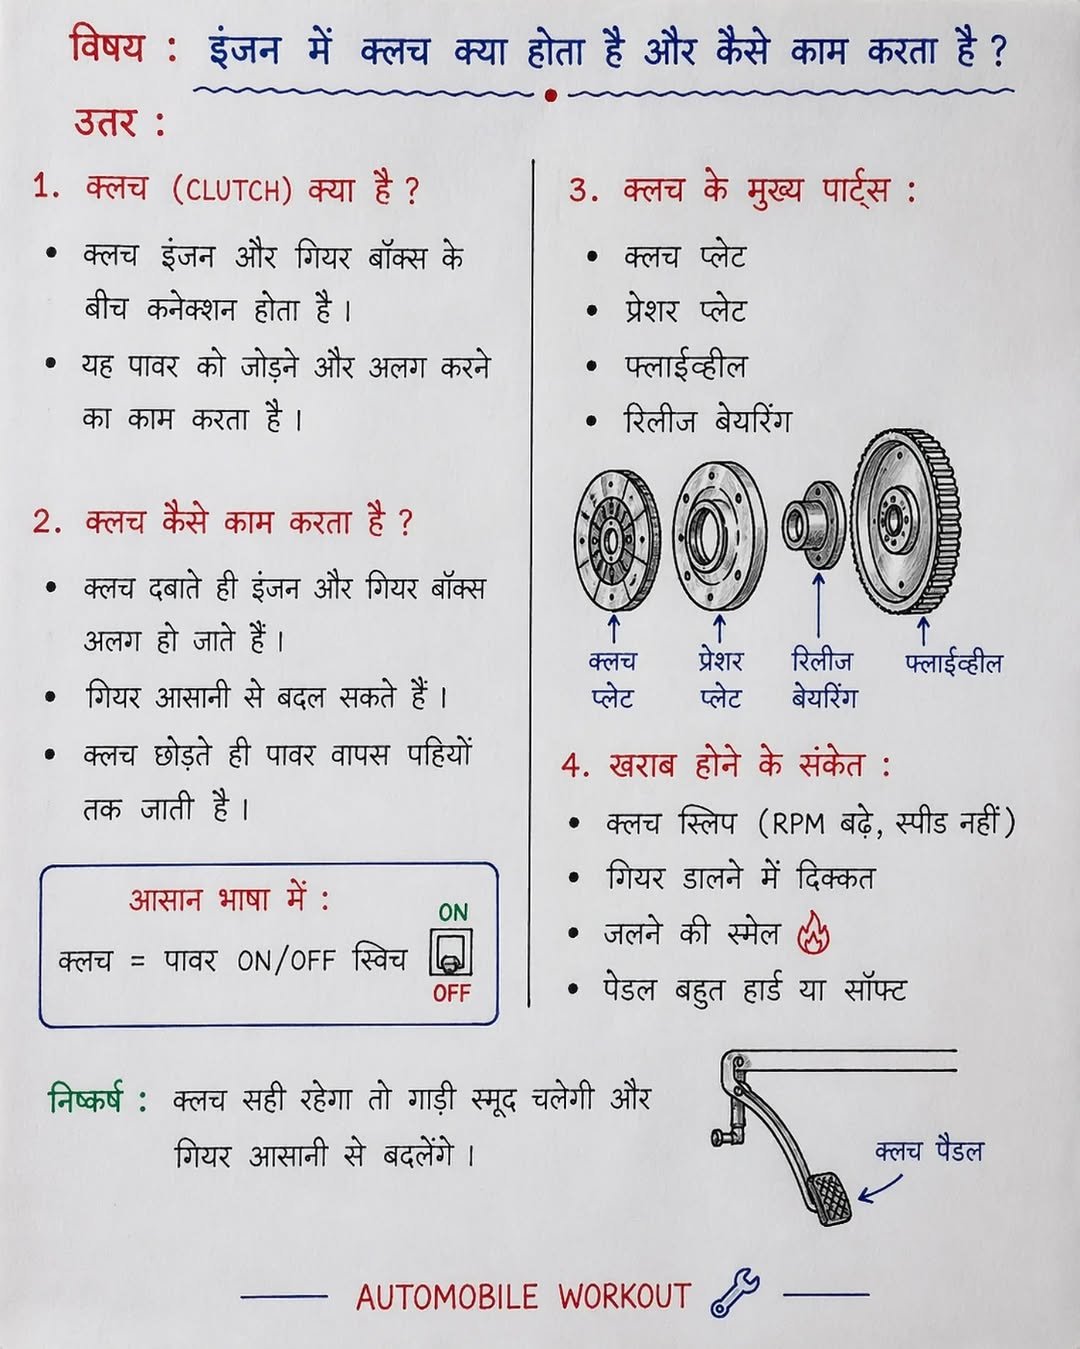 विषय : इंजन में क्लच क्या होता है और कैसे काम करता है ?
उतर :
1. क्लच (CLUTCH) क्या है ?
• क्लच इंजन और गियर बॉक्स के
बीच कनेक्शन होता है ।
• यह पावर को जोड़ने और अलग करने
का काम करता है ।
2. क्लच कैसे काम करता है ?
• क्लच दबाते ही इंजन और गियर बॉक्स
अलग हो जाते हैं ।
• गियर आसानी से बदल सकते हैं ।
• क्लच छोड़ते ही पावर वापस पहियों
तक जाती है ।
आसान भाषा में :
क्लच = पावर ON/OFF स्विच
ON
OFF
3. क्लच के मुख्य पार्ट्स :
• क्लच प्लेट
• प्रेशर प्लेट
• फ्लाईव्हील
• रिलीज बेयरिंग
क्लच
प्लेट
प्रेशर
प्लेट
रिलीज
बेयरिंग
फ्लाईव्हील
4. खराब होने के संकेत :
• क्लच स्लिप (RPM बढ़े, स्पीड नहीं)
• गियर डालने में दिक्कत
• जलने की स्मेल
• पेडल बहुत हार्ड या सॉफ्ट
निष्कर्ष : क्लच सही रहेगा तो गाड़ी स्मूद चलेगी और
गियर आसानी से बदलेंगे ।
क्लच पैडल
AUTOMOBILE WORKOUT